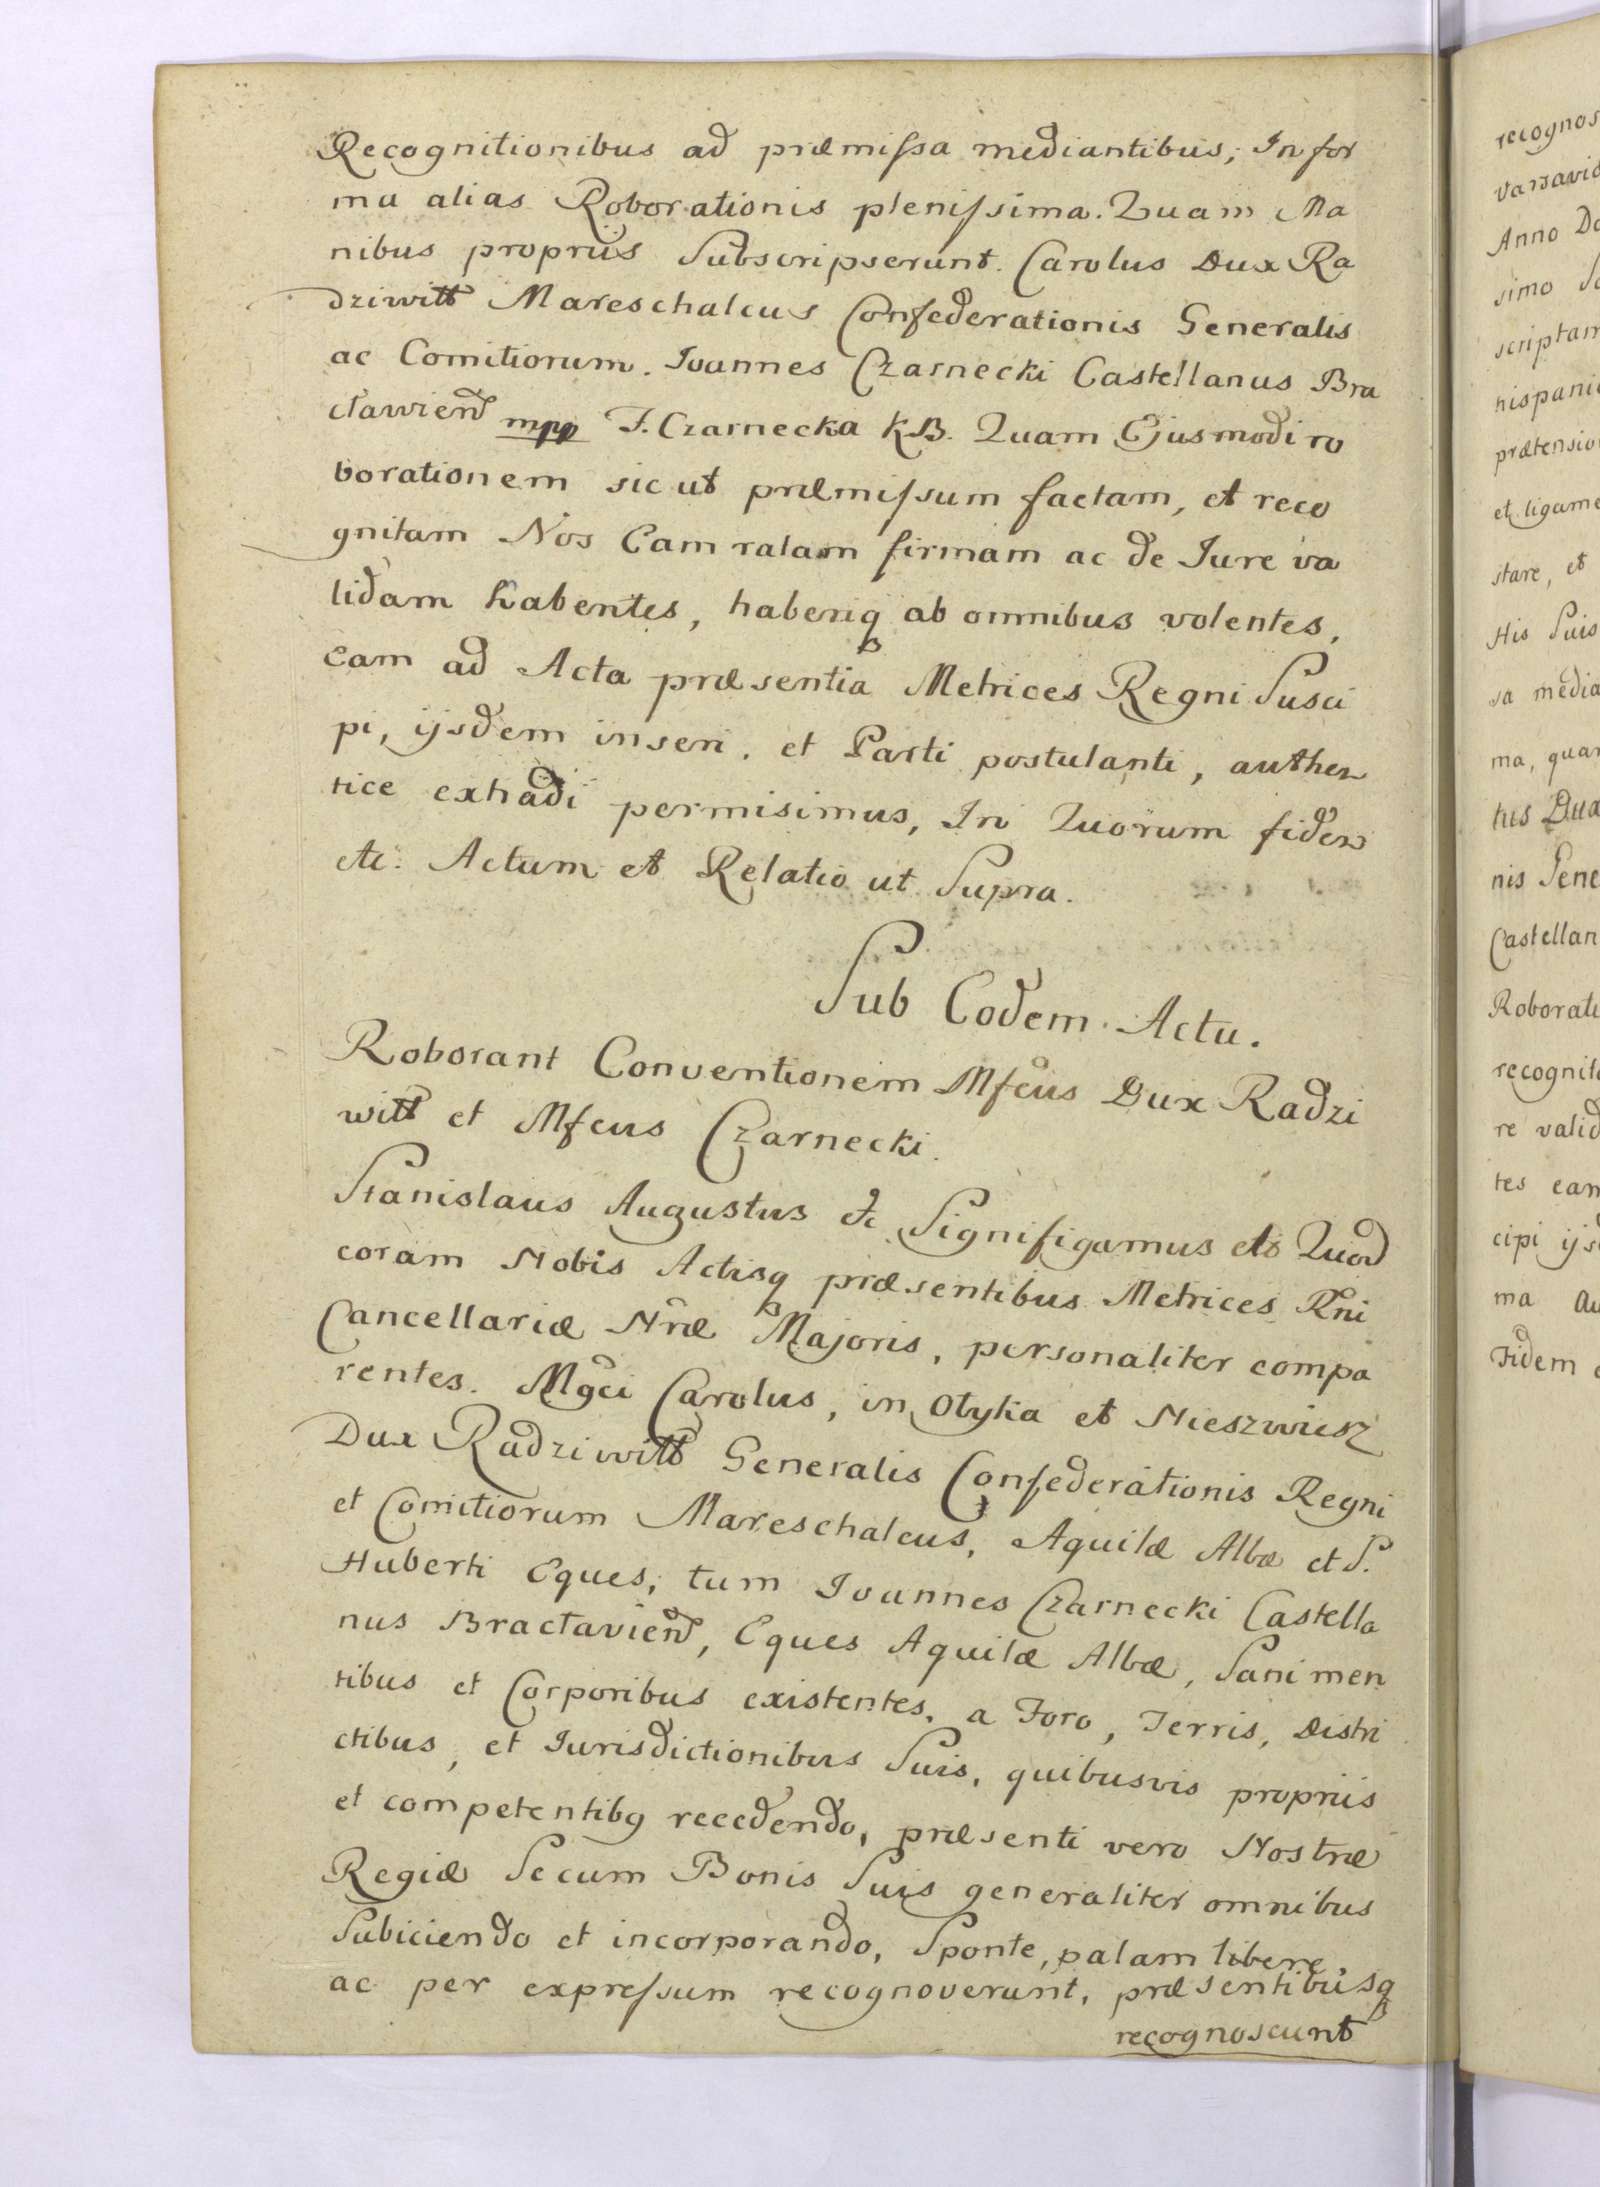 Recognitionibus ad præmissa mediantibus, In for
ma alias Roborationis plenissima. Quam Ma
nibus propriis Subscripserunt. Carolus Dux Ra
dziwiłł Mareschalcus Confederationis Generalis
ac Comitiorum. Ioannes Czarnecki Castellanus Bra
clawien mpp F. Czarnecka K.B. Quam Ejusmodi ro
borationem sicut præmissum factam, et reco
gnitam Nos Eam ratam firmam ac de Iure va
lidam habentes, haberiq ab omnibus volentes,
Eam ad Acta præsentia Metrices Regni Susci
pi, ijsdem inseri, et Parti postulanti, authen
tice extradi permisimus, In Quorum fidem
etc. Actum et Relatio ut Supra.
Sub Eodem Actu.
Roborant Conventionem Mfcus Dux Radzi
wiłł et Mfcus Czarnecki.
Stanislaus Augustus etc Signifigamus etc Quod
coram Nobis Actisq præsentibus Metrices Rni
Cancellariæ Nræ Majoris, personaliter compa
rentes. Mgci Carolus, in Ołyka et Nieszwiesz
Dux Radziwiłł Generalis Confederationis Regni
et Comitiorum Mareschalcus, Aquilæ Albæ et S.
Huberti Eques, tum Ioannes Czarnecki Castella
nus Braclavien, Eques Aquilæ Albæ, Sani men
tibus et Corporibus existentes, a Foro, Terris, Distri
ctibus, et Iurisdictionibus Suis, quibusvis propriis
et competentibq recedendo, præsenti vero Nostræ
Regiæ Secum Bonis Suis generaliter omnibus
Subiciendo et incorporando, Sponte, palam libere
ac per expressum recognoverunt, præsentibusq
recognoscunt
recognos
Varsavi
Anno Do
simo
scriptam
hispani
prætensio
et ligame
stare, et
His Suis
sa media
ma, quam
lus Dux
nis Gene
Castellan
Roborati
recognit
re valid
tes eam
cipi ijs
ma au
Fidem